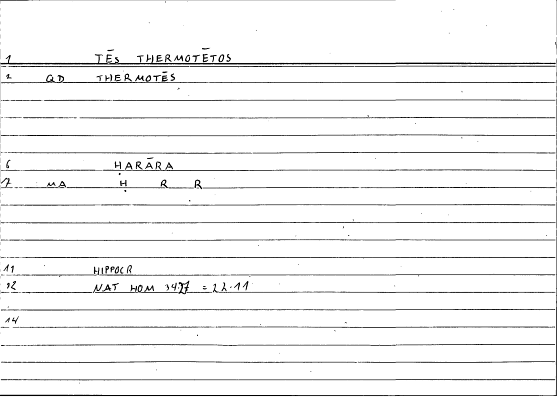 1 TĒS THERMOTĒTOS
2 QD THERMOTĒS
6 ḤARĀRA
7 MA Ḥ R R
11 HIPPOCR
12 NAT HOM = 22.11
14